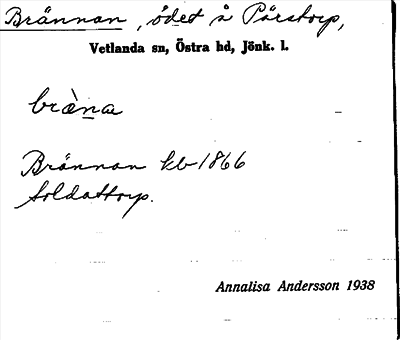 Brännan, ödet å Pårstorp,
Vetlanda sn, Östra hd, Jönk. l.
bràna
Brännan kb 1866
Soldattorp.
Annalisa Andersson 1938